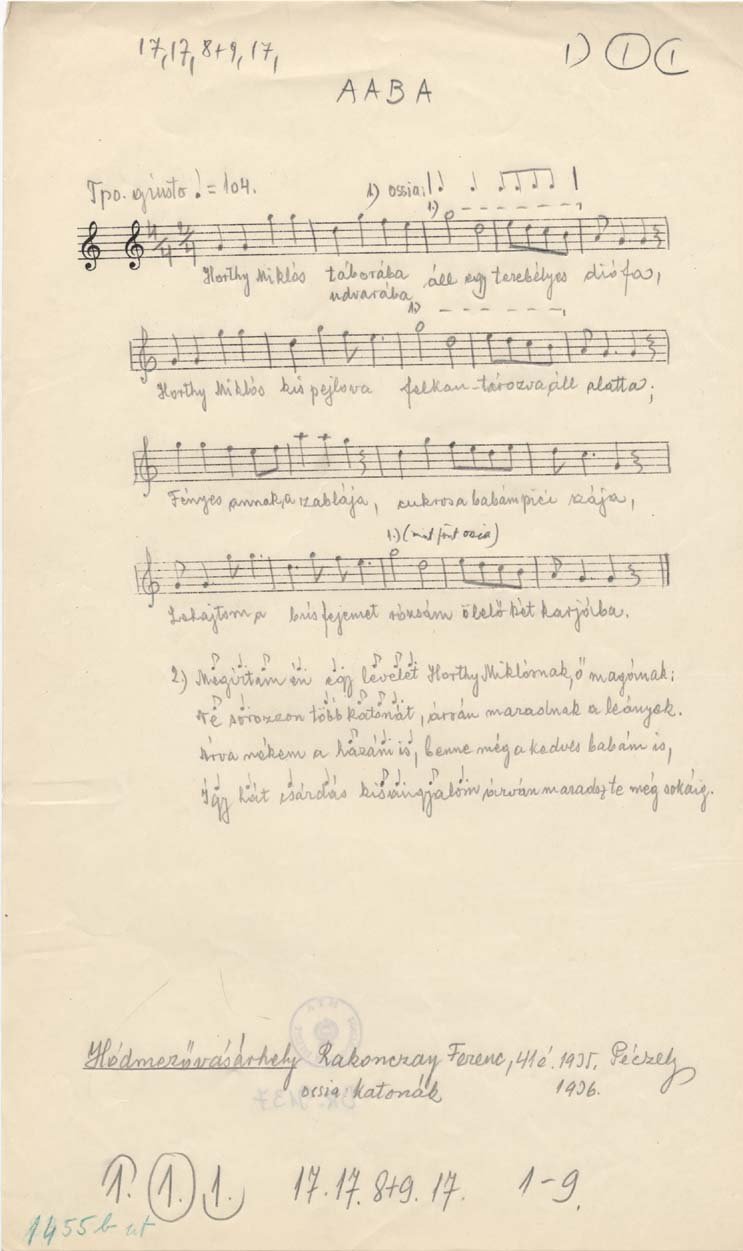 17, 17, 8+9, 17, 1) 1 1
AABA
Tpo. giusto ♩= 104. 1) ossia:
1.)
Horthy Miklós táborába áll egy terebélyes diófa,
udvarába
1.)
Horthy Miklós kis pejlova felkan-tározva áll alatta;
Fényes annak a zablája, cukros a babám pici szája,
1.) (mint fönt ossia)
Lehajtom a bús fejemet rózsám ölelő két karjába.
2) Megirtam én egy levelet Horthy Miklósnak, ő magának:
Ne sorozzon több katonát, árván maradnak a leányok.
Árva nékem a hazám is, benne még a kedves babám is,
Így hát csárdás kisangyalom, árván maradsz te még sokáig.
Hódmezővásárhely Rakonczay Ferenc, 41 é. 1935. Péczely
ossia: Katonák 1936.
1. 1. 1. 17. 17. 8+9. 17. 1-9.
1455 b